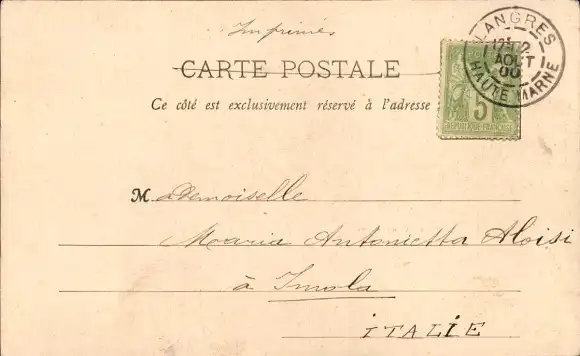 Imprimés
CARTE POSTALE
Ce côté est exclusivement réservé à l'adresse
LANGRES
12
AOUT
00
HAUTE MARNE
5
REPUBLIQUE FRANÇAISE
Mademoiselle
Maria Antonietta Aloisi
à Imola
ITALIE